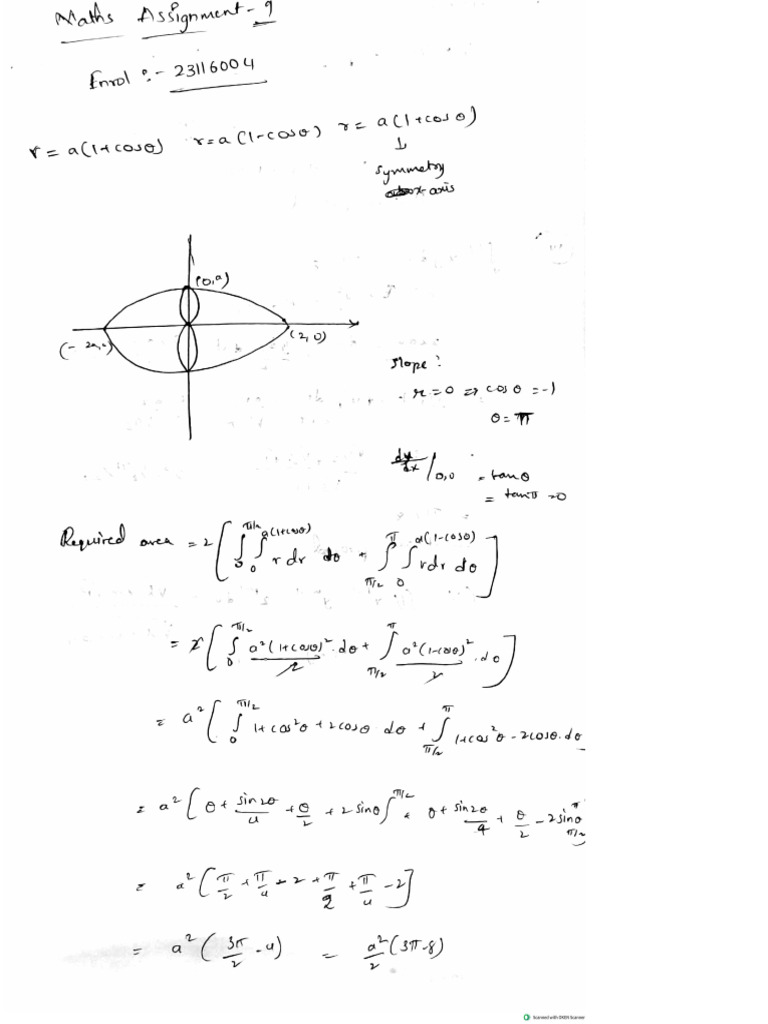 Maths Assignment - 9
Enrol :- 23116004
r = a(1+cosθ) r=a(1-cosθ) r= a(1+cosθ)
↓
symmetry
x-axis
(0,a)
(-2a,0) (2,0)
slope :
r=0 ⇒ cosθ = -1
θ = π
dy/dx /0,0 = tanθ
= tanπ =0
Required area = 2[∫₀^π/2 ∫₀^a(1+cosθ) r dr dθ + ∫π/2^π ∫₀^a(1-cosθ) r dr dθ]
= 2[∫₀^π/2 a²(1+cosθ)²/2 . dθ + ∫π/2^π a²(1-cosθ)²/2 . dθ]
= a²[∫₀^π/2 1+cos²θ+2cosθ dθ + ∫π/2^π 1+cos²θ-2cosθ.dθ
= a²[θ + sin2θ/4 + θ/2 + 2sinθ]^π/2 + θ + sin2θ/4 + θ/2 - 2sinθ]π/2^π
= a²[π/2 + π/4 - 2 + π/2 + π/4 - 2]
= a²(3π/2 - 4) = a²/2 (3π-8)
Scanned with OKEN Scanner